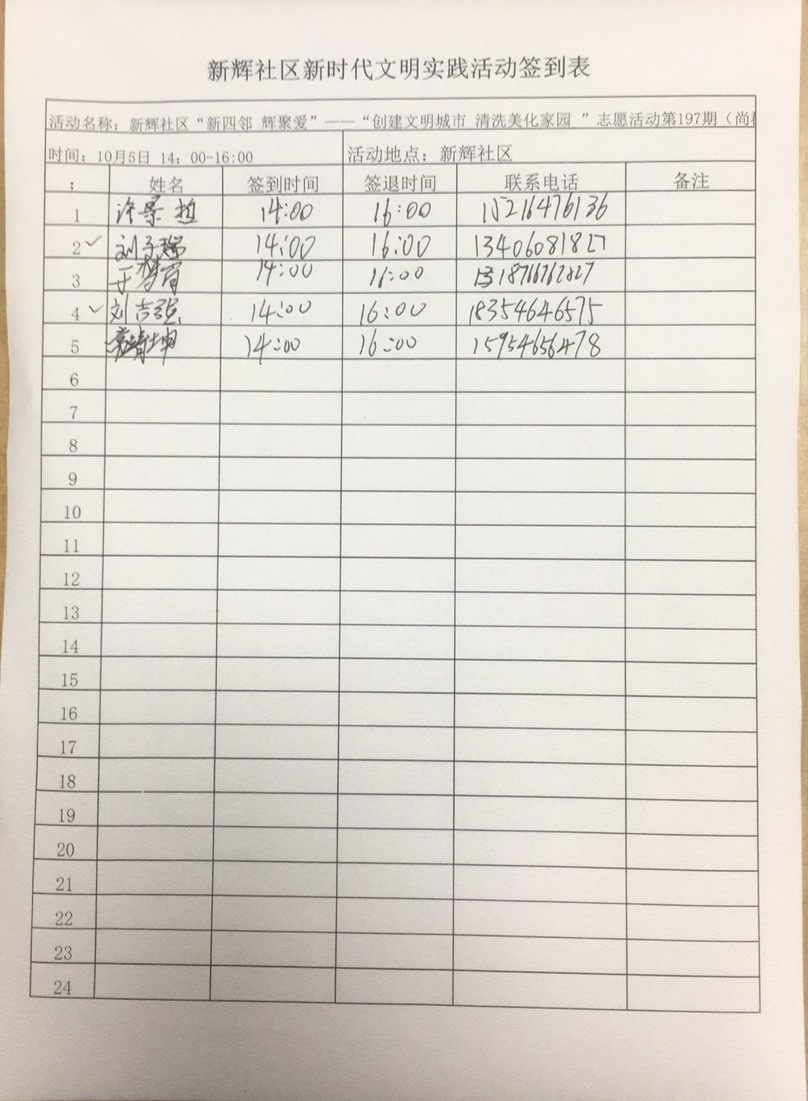 新辉社区新时代文明实践活动签到表
活动名称：新辉社区“新四邻 辉聚爱”——“创建文明城市 清洗美化家园 ”志愿活动第197期（尚
时间：10月5日 14：00-16:00 活动地点：新辉社区
： 姓名 签到时间 签退时间 联系电话 备注
1 14:00 16:00 15216476136
2 ✓ 刘子瑞 14:00 16:00 13406081827
3 14:00 16:00
4 ✓ 刘吉强 14:00 16:00 18354646575
5 14:00 16:00 15954656478
6
7
8
9
10
11
12
13
14
15
16
17
18
19
20
21
22
23
24